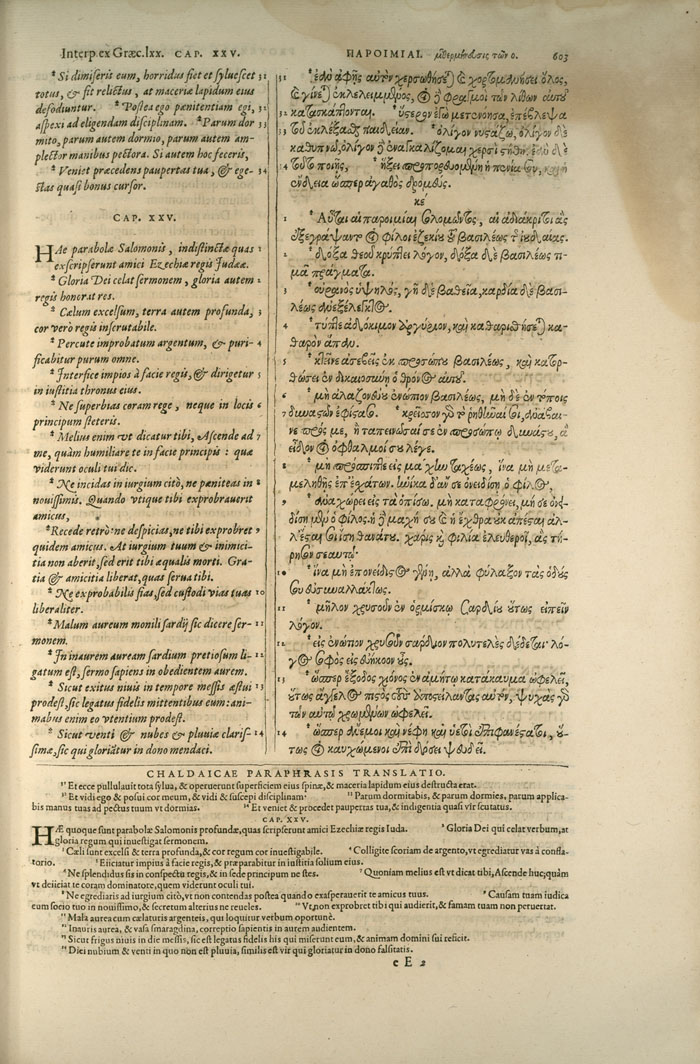 Interp. ex Græc. lxx. CAP. XXV.
* Si dimiseris eum, horridus fiet et syluescet 31
totus, & fit relictus, at maceriæ lapidum eius
defodiuntur. * Postea ego pænitentiam egi, 32
aspexi ad eligendam disciplinam. * Parum dor 33
mito, parum autem dormio, parum autem am-
plector manibus pectora. Si autem hoc feceris,
* Veniet præcedens paupertas tua, & ege- 34
stas quasi bonus cursor.
CAP. XXV.
HAe parabolæ Salomonis, indistinctæ quas 1
exscripserunt amici Ezechiæ regis Iudææ.
* Gloria Dei celat sermonem, gloria autem 2
regis honorat res.
* Cælum excelsum, terra autem profunda, 3
cor verò regis inscrutabile.
* Percute improbatum argentum, & puri- 4
ficabitur purum omne.
* Interfice impios à facie regis, & dirigetur 5
in iustitia thronus eius.
* Ne superbias coram rege, neque in locis 6
principum steteris.
* Melius enim vt dicatur tibi, Ascende ad 7
me, quàm humiliare te in facie principis: quæ
viderunt oculi tui dic.
* Ne incidas in iurgium citò, ne pæniteas in 8
nouissimis. Quando vtique tibi exprobrauerit
amicus,
* Recede retrò: ne despicias, ne tibi exprobret 9
quidem amicus. At iurgium tuum & inimici-
tia non aberit, sed erit tibi æqualis morti. Gra-
tia & amicitia liberat, quas serua tibi.
* Ne exprobabilis fias, sed custodi vias tuas 10
liberaliter.
* Malum aureum monili sardij sic dicere ser- 11
monem.
* In inaurem auream sardium pretiosum li- 12
gatum est, sermo sapiens in obedientem aurem.
* Sicut exitus niuis in tempore messis æstui 13
prodest, sic legatus fidelis mittentibus eum: ani-
mabus enim eo vtentium prodest.
* Sicut venti & nubes & pluuiæ claris- 14
simæ, sic qui gloriātur in dono mendaci.
ΠΑΡΟΙΜΙΑΙ. μεθερμήνευσις τῶν ο. 603
31 * ἐὰν ἀφῇς αὐτὸν χερσωθήσε) ϗ χορτομανήσει ὅλος,
32 κατασκάπτονται. * ὕστερον ἐγὼ μετενόησα, ἐπέβλεψα
33 τοῦ ἐκλέξασθαι παιδείαν. * ὀλίγον νυστάζω, ὀλίγον δὲ
ἔνδεια ὥσπερ ἀγαθὸς δρομεύς.
κε΄
1 * Αὗται αἱ παροιμίαι Σολομῶντος, αἱ ἀδιάκριτοι ἃς
ἐξεγράψαντο οἱ φίλοι ἐζεκίου τοῦ βασιλέως τ ἰουδαίας.
2 * δόξα θεοῦ κρύπτει λόγον, δόξα δὲ βασιλέως τι-
μᾷ πράγματα.
3 * οὐρανὸς ὑψηλὸς, γῆ δὲ βαθεῖα, καρδία δὲ βασι-
λέως ἀνεξέλεγκτος.
4 * τύπτε ἀδόκιμον ἀργύριον, καὶ καθαρισθήσε) κα-
θαρὸν ἅπαν.
5 * κτεῖνε ἀσεβεῖς ἐκ προσώπου βασιλέως, καὶ κατορ-
θώσει ἐν δικαιοσύνῃ ὁ θρόνος αὐτοῦ.
6 * μὴ ἀλαζονεύου ἐνώπιον βασιλέως, μὴ δὲ ἐν τόποις
7 δυναστῶν ὑφίστασο. * κρεῖσσον γὰρ τὸ ῥηθῆναί σοι, ἀνάβαι-
νε πρός με, ἢ ταπεινῶσαί σε ἐν προσώπῳ δυνάστου, ἃ
εἶδον οἱ ὀφθαλμοί σου λέγε.
8 * μὴ πρόσπιπτε εἰς μάχην ταχέως, ἵνα μὴ μετα-
μεληθῇς ἐπ᾽ ἐσχάτων. ἡνίκα ἂν σε ὀνειδίσῃ ὁ φίλος,
9 * ἀναχώρει εἰς τὰ ὀπίσω. μὴ καταφρόνει, μή σε ὀνει-
τήρησον σεαυτῷ.
10 * ἵνα μὴ ἐπονείδιστος γένῃ, ἀλλὰ φύλαξον τὰς ὁδούς
σου εὐσυναλλάκτως.
11 * μῆλον χρυσοῦν ἐν ὁρμίσκῳ σαρδίου οὕτως εἰπεῖν
λόγον.
12 * εἰς ἐνώτιον χρυσοῦν σάρδιον πολυτελὲς δέδεται· λό-
γος σοφὸς εἰς εὐήκοον οὖς.
13 * ὥσπερ ἔξοδος χιόνος ἐν ἀμήτῳ κατὰ καῦμα ὠφελεῖ,
οὕτως ἄγγελος πιστὸς τοὺς ἀποστείλαντας αὐτὸν, ψυχὰς γὰρ
τῶν αὐτῷ χρωμένων ὠφελεῖ.
14 * ὥσπερ ἄνεμοι καὶ νέφη καὶ ὑετοὶ ἐπιφανέστατοι, οὕ-
τως οἱ καυχώμενοι ἐπὶ δόσει ψευδεῖ.
CHALDAICAE PARAPHRASIS TRANSLATIO.
31 Et ecce pullulauit tota sylua, & operuerunt superficiem eius spinæ, & maceria lapidum eius destructa erat.
32 Et vidi ego & posui cor meum, & vidi & suscepi disciplinam. 33 Parum dormitabis, & parum dormies, parum applica-
bis manus tuas ad pectus tuum vt dormias. 34 Et veniet & procedet paupertas tua, & indigentia quasi vir scutatus.
CAP. XXV.
HAE quoque sunt parabolæ Salomonis profundæ, quas scripserunt amici Ezechiæ regis Iuda. 2 Gloria Dei qui celat verbum, at
gloria regum qui inuestigat sermonem.
3 Cæli sunt excelsi & terra profunda, & cor regum cor inuestigabile. 4 Colligite scoriam de argento, vt egrediatur vas à confla-
torio. 5 Eiiciatur impius à facie regis, & præparabitur in iustitia solium eius.
6 Ne splendidus sis in conspectu regis, & in sede principum ne stes. 7 Quoniam melius est vt dicat tibi, Ascende huc; quàm
vt deiiciat te coram dominatore, quem viderunt oculi tui.
8 Ne egrediaris ad iurgium citò, vt non contendas postea quando exasperauerit te amicus tuus. 9 Causam tuam iudica
cum socio tuo in nouissimo, & secretum alterius ne reueles. 10 Vt non exprobret tibi qui audierit, & famam tuam non peruertat.
11 Mala aurea cum cælaturis argenteis, qui loquitur verbum oportunè.
12 Inauris aurea, & vasa smaragdina, correptio sapientis in aurem audientem.
13 Sicut frigus niuis in die messis, sic est legatus fidelis his qui miserunt eum, & animam domini sui reficit.
14 Diei nubium & venti in quo non est pluuia, similis est vir qui gloriatur in dono falsitatis.
cE 2